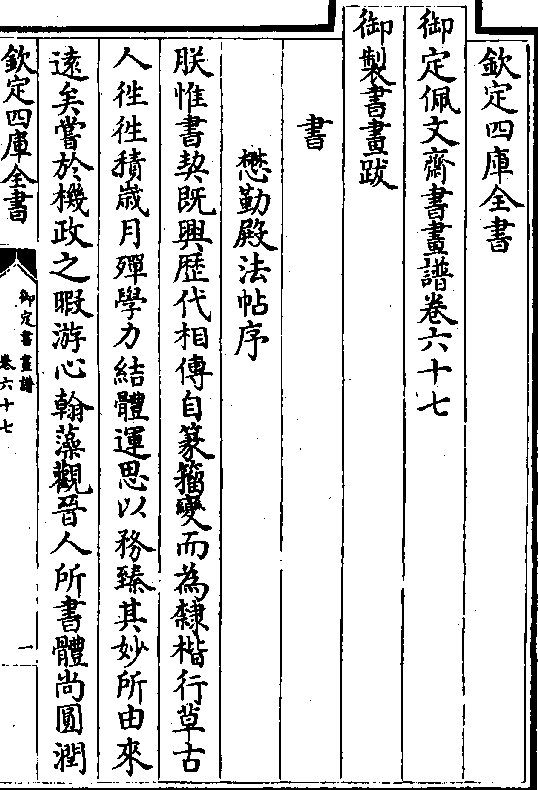 欽定四庫全書
御定佩文齋書畫譜卷六十七
御製書畫跋
書
懋勤殿法帖序
朕惟書契既興歴代相傳自篆籀變而為隸楷行草古
人徃徃積歳月殫學力結體運思以務臻其妙所由來
逺矣嘗於機政之暇游心翰藻觀晉人所書體尚圓潤
欽定四庫全書
御定書畫譜
卷六十七
一